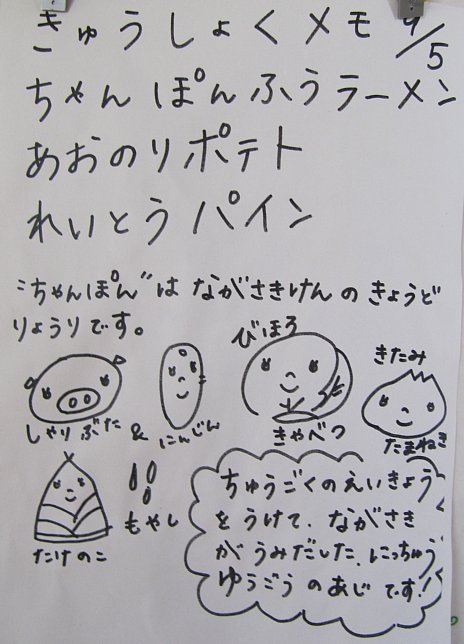 きゅうしょくメモ 9/5
ちゃんぽんふうラーメン
あおのりポテト
れいとうパイン
"ちゃんぽん"は ながさきけんの きょうど
りょうりです。
しゃりぶた
&
にんじん
びほろ
きゃべつ
きたみ
たまねぎ
たけのこ
もやし
ちゅうごくのえいきょう
をうけて、ながさき
がうみだした、にっちゅう
ゆうごうのあじです!